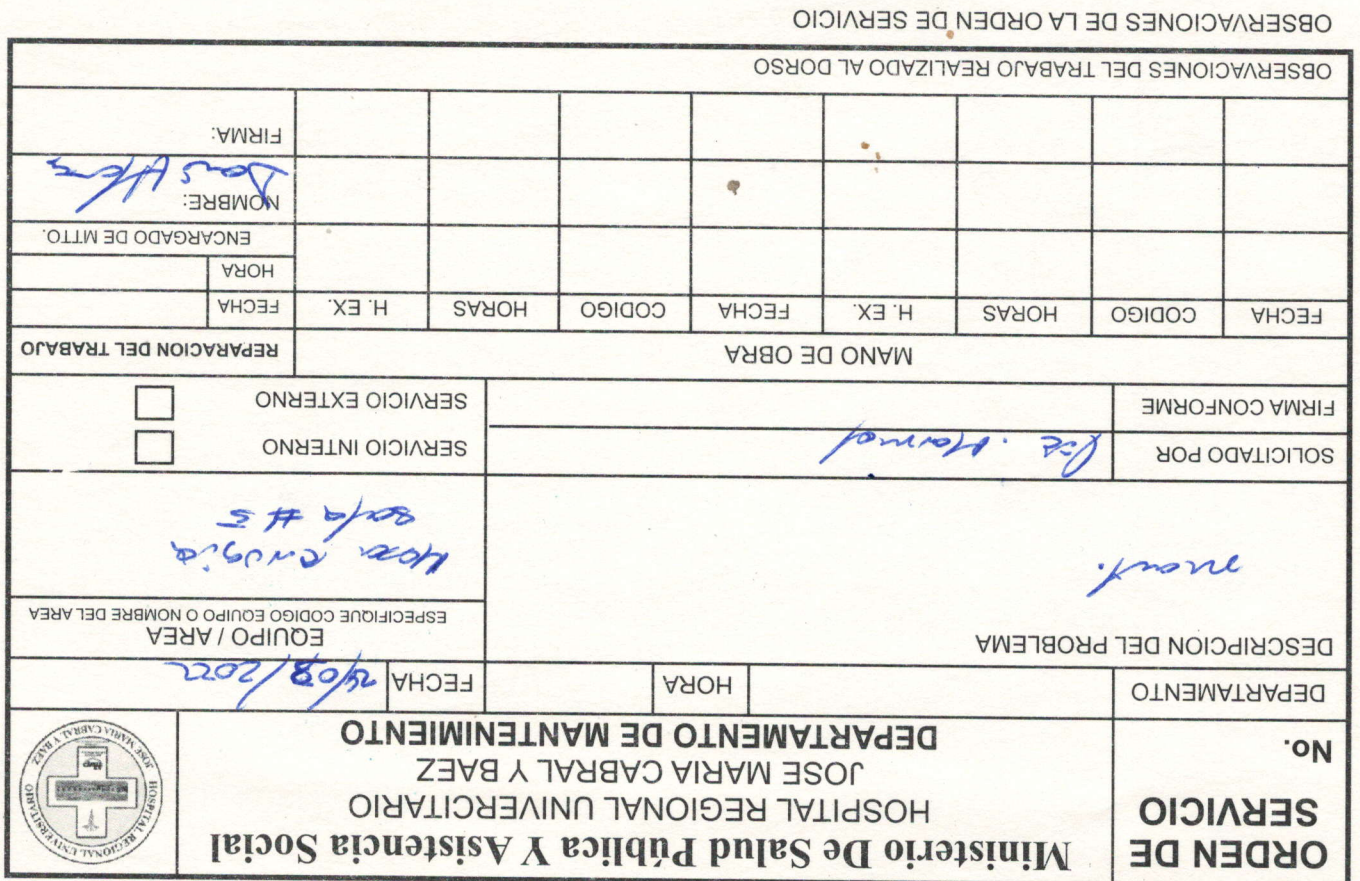 ORDEN DE SERVICIO
No.
Ministerio De Salud Pública Y Asistencia Social
HOSPITAL REGIONAL UNIVERCITARIO
JOSE MARIA CABRAL Y BAEZ
DEPARTAMENTO DE MANTENIMIENTO
HOSPITAL REGIONAL UNIVERSITARIO
JOSE MARIA CABRAL Y BAEZ
DEPARTAMENTO
HORA
FECHA /2022
DESCRIPCION DEL PROBLEMA
mant.
EQUIPO / AREA
ESPECIFIQUE CODIGO EQUIPO O NOMBRE DEL AREA
sala # 5
SOLICITADO POR Lic.
FIRMA CONFORME
SERVICIO INTERNO
SERVICIO EXTERNO
MANO DE OBRA
REPARACION DEL TRABAJO
FECHA CODIGO HORAS H. EX. FECHA CODIGO HORAS H. EX.
FECHA
HORA
ENCARGADO DE MTTO.
NOMBRE:
FIRMA:
OBSERVACIONES DEL TRABAJO REALIZADO AL DORSO
OBSERVACIONES DE LA ORDEN DE SERVICIO